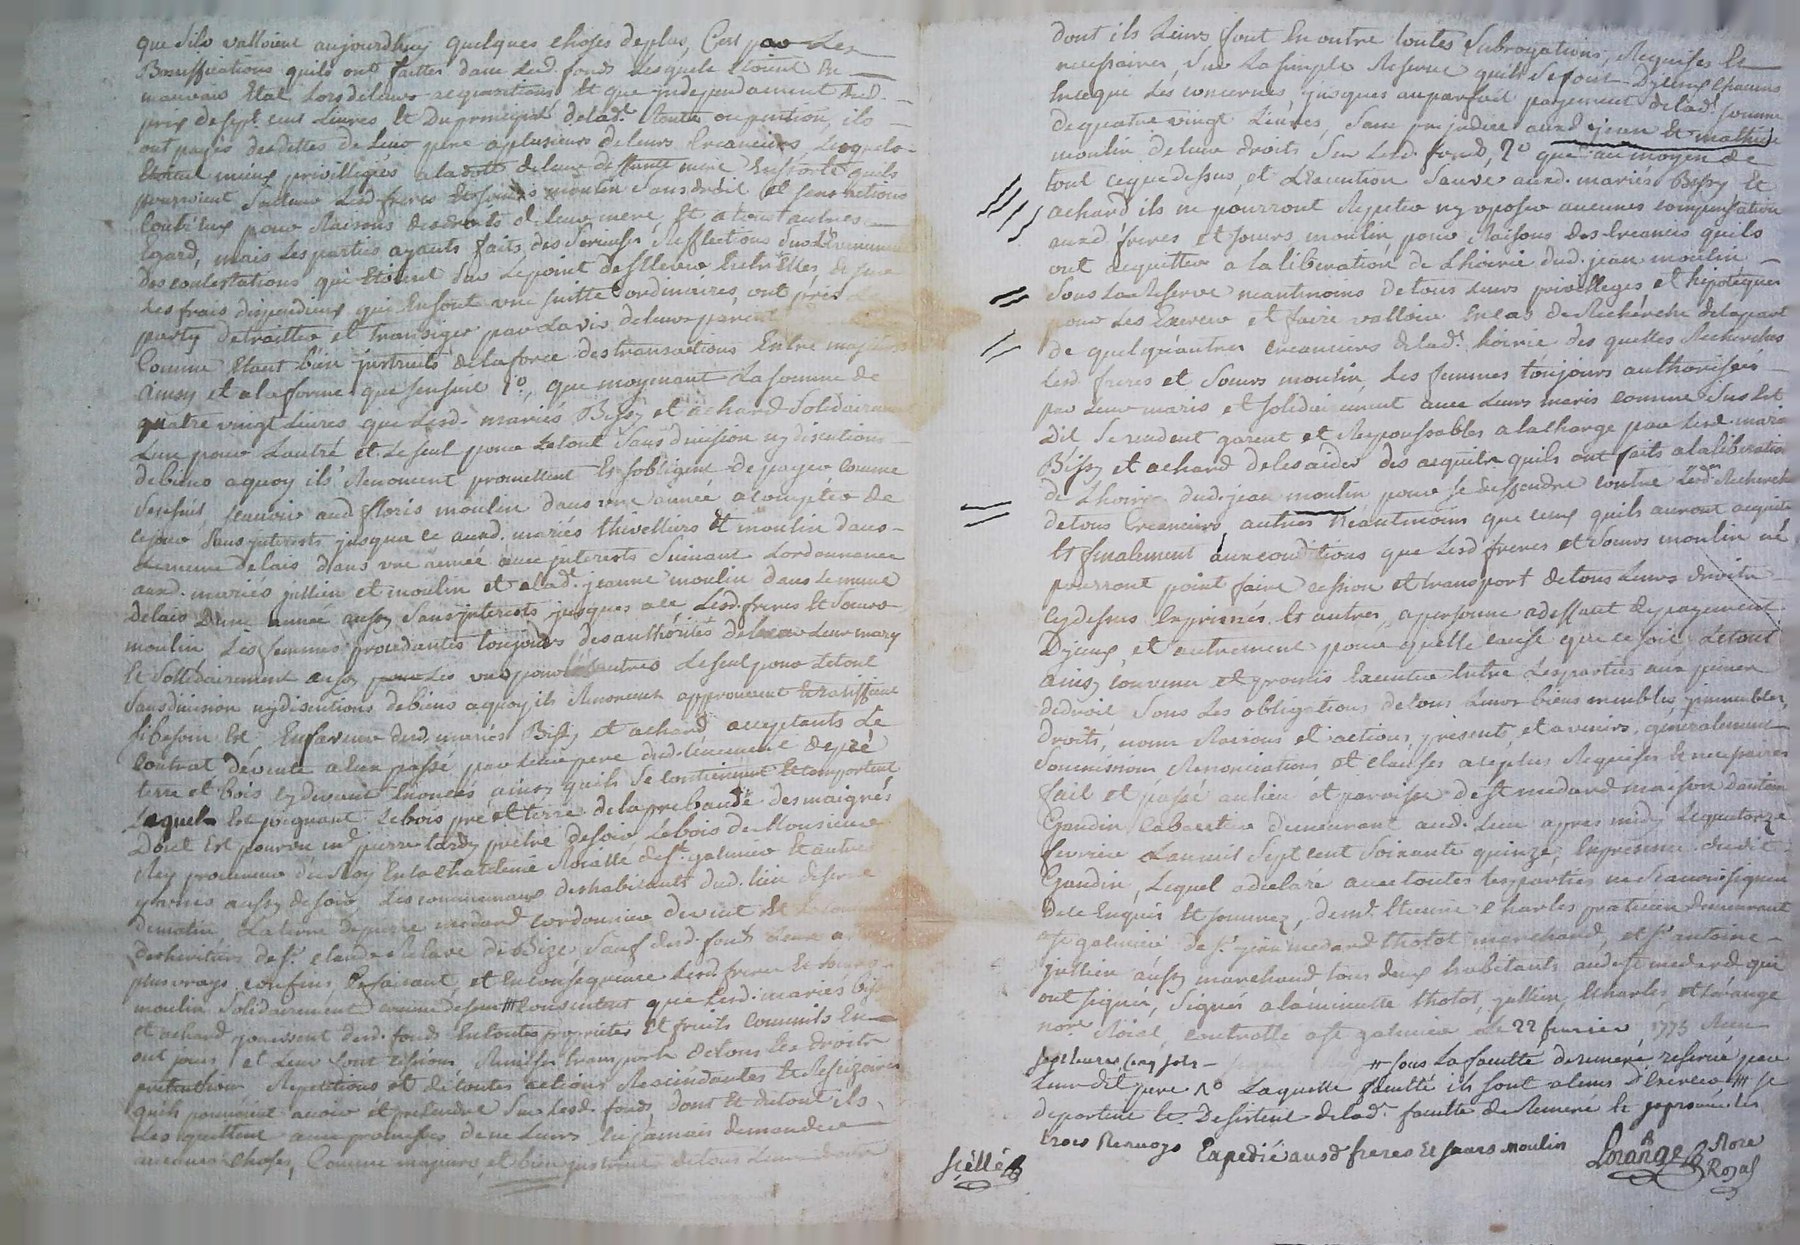 que s'ils valloient aujourdhuy quelques choses deplus, C'est par Les
Bonniffications quils ont faittes dans Lesd. fonds Lesquels etoient En
mauvais Etat Lors deleurs acquisitions Et que jndependament dud.
prix de sept cent Livres Et Du principal delad.e Rente ou pention, ils
ont payés des dettes de Leur pere a plusieurs deleurs Creanciers Lesquels
Etoient mieux privillegiés a la dotte deleur deffunte mere Ensorte quils
pourroient Lesd. freres Et soeurs moulin sans droit et sans actions
Contr'Eux pour Raisons des droits de leur mere, Et a tout autres
Egard, mais Les parties ayants faits des serieuses Reflections sur L'Evenement
des contestations qui Etoient sur Le point de s'Elever Entr'Elles, de sur
Les frais dispendieux qui En sont une suitte ordinaires, ont pris Le
party de traitter et transiger par L'avis deleurs parents
Comme Etant bien jnstruits de la force des transactions Entre majeurs
Ainsy et a la forme que s'ensuit 1.o que moyenant La somme de
quatre vingt Livres que Lesd. mariés Bissy et achard solidairement
L'un pour L'autre et Le seul pour Le tout sans division ny discutions
de biens a quoy ils Renoncent promettent Et s'obligent de payer comme
s'ensuit scavoir aud. floris moulin dans une année a compter de
ce jour sans jnterests jusqua ce aux d. mariés thivelliers Et moulin dans
Le meme delais dans une année avec jnterests suivant Lordonnance
aux d. mariés jullien et moulin et a lad.e jeanne moulin dans Le meme
delais D'une année aussy sans jnterests jusques a ce Lesd. freres Et soeurs
moulin Les femmes procedantes toujours des authorités de Leur mary
Et sollidairement aussy Les uns pour les autres Le seul pour Le tout
sans division ny discutions de biens a quoy ils Renoncent approuvent Et ratiffient
si besoin Est En faveur desd. mariés Bissy et achard acceptants Le
Contrat de vente a Eux passé par Leur pere du d. tenement de pré
terre et bois cy devant Enoncés, ainsy quils se contiennent Et comportent
Lequel Est joignant Le bois pré et terre de la prebande des maignes
Dont Est pourvu m.re pierre tardy pretre de soir Le bois de Monsieur
Rey procureur du Roy En la chatelenie Royalle de s.t galmier Et autres
y jornés aussy de soir, Les communaux des habitants dud. Lieu de
De matin La terre de pierre medard cordonnier de vent Et
des heritiers de s.r claude Relave de Bize, sauf desd. fonds Leurs
plus vrays confins, Ce faisant, et En consequence Lesd. freres Et soeurs
moulin solidairement comme dessus # consentent que Lesd. mariés Bissy
et achard jouissent desd. fonds En toutes proprietés Et fruits comme ils En
ont jouis et Leur font cession, Remise transports De tous Les droits
pretentions Repetitions et de toutes actions Rescindantes Et Rescizoires
quils pourroient avoir et pretendre sur Lesd. fonds Dont Et du tout ils
Les quittent avec promesses de ne Leurs En jamais demander
aucunes choses, Comme majeurs, et bien jnstruits de tous Leurs droits
dont ils Leurs font En outre toutes subrogations, Requises Et
necessaires, sur La simple Reserve quils se font D'jceux chacuns
En ce qui Les concernes, jusques au parfait payement de lad.e somme
de quatre vingt Livres, sans prejudice aux d. jean Et mathieu
moulin De leurs droits sur Lesd. fonds, 2.o que au moyen de
tout ce que dessus, et L'Execution sauve aux d. mariés Bissy Et
achard ils ne pourront Repeter ny oposer aucunes compensation
aux d. freres et soeurs moulin pour Raisons des Creances quils
ont acquittés a la liberation de L'hoirie dud. jean moulin
sous La Reserve neantmoins De tous Leurs privilleges et hipoteques
pour Les Exercer et faire valloir En cas de Recherche de la part
de quelqu'autres creanciers de lad.e hoirie des quelles Recherches
Lesd. freres et soeurs moulin, Les femmes toujours authorisées
par Leurs maris et solidairement avec Leurs maris comme sus Est
Dit se rendent garent et Responssables a la charge par Lesd. mariés
Bissy et achard de les aider des acquits quils ont faits a la liberation
de L'hoirie dud. jean moulin pour se deffendre contre Lesd. Recherches
de tous Creanciers autres Neantmoins que ceux quils auront acquittés
Et finalement aux conditions que Lesd. freres et soeurs moulin ne
pourront point faire cession et transport de tous Leurs droits
Cy dessus Exprimés Et autres, a personne a deffaut de payement
D'jceux, et autrement pour quelle cause que ce soit, Le tout
ainsy convenu et promis Executer Entre Les parties aux peines
de droit sous Les obligations de tous Leurs biens meubles jmmeubles,
Droits, noms Raisons et actions presents et avenirs generalement
soumissions Renonciations et clauses a ce plus Requises Et necessaires
fait et passé au lieu et paroisse de s.t medard maison d'antoine
Gaudin Cabaretier demeurant aud. Lieu apres midy Le quatorze
fevrier L'an mil sept cent soixante quinze, En presence dudit
Gaudin, Lequel a declaré avec toutes Les parties ne scavoir signer
De ce Enquis Et sommez, de m.e Etienne Charles praticien demeurant
a s.t galmier de s.r jean medard thotot marchand, et s.r antoine
jullien aussy marchand tous deux habitants aud. s.t medard qui
ont signés, signés a la minutte thotot, jullien, Charles, et Lorange
no.re Roial, controllé a s.t galmier Le 22 fevrier 1775 Recu
sept livres cinq sols # sous La faculté de reméré reservée par
Leur dit pere n.o Laquelle faculté ils sont a tems D'Exercer # se
departent Et Desistent de lad.e faculté de Reméré Et japrouve les
trois Renvoys Expedié aux d. freres Et soeurs Moulin
Lorange No.re
Royal
scéllé